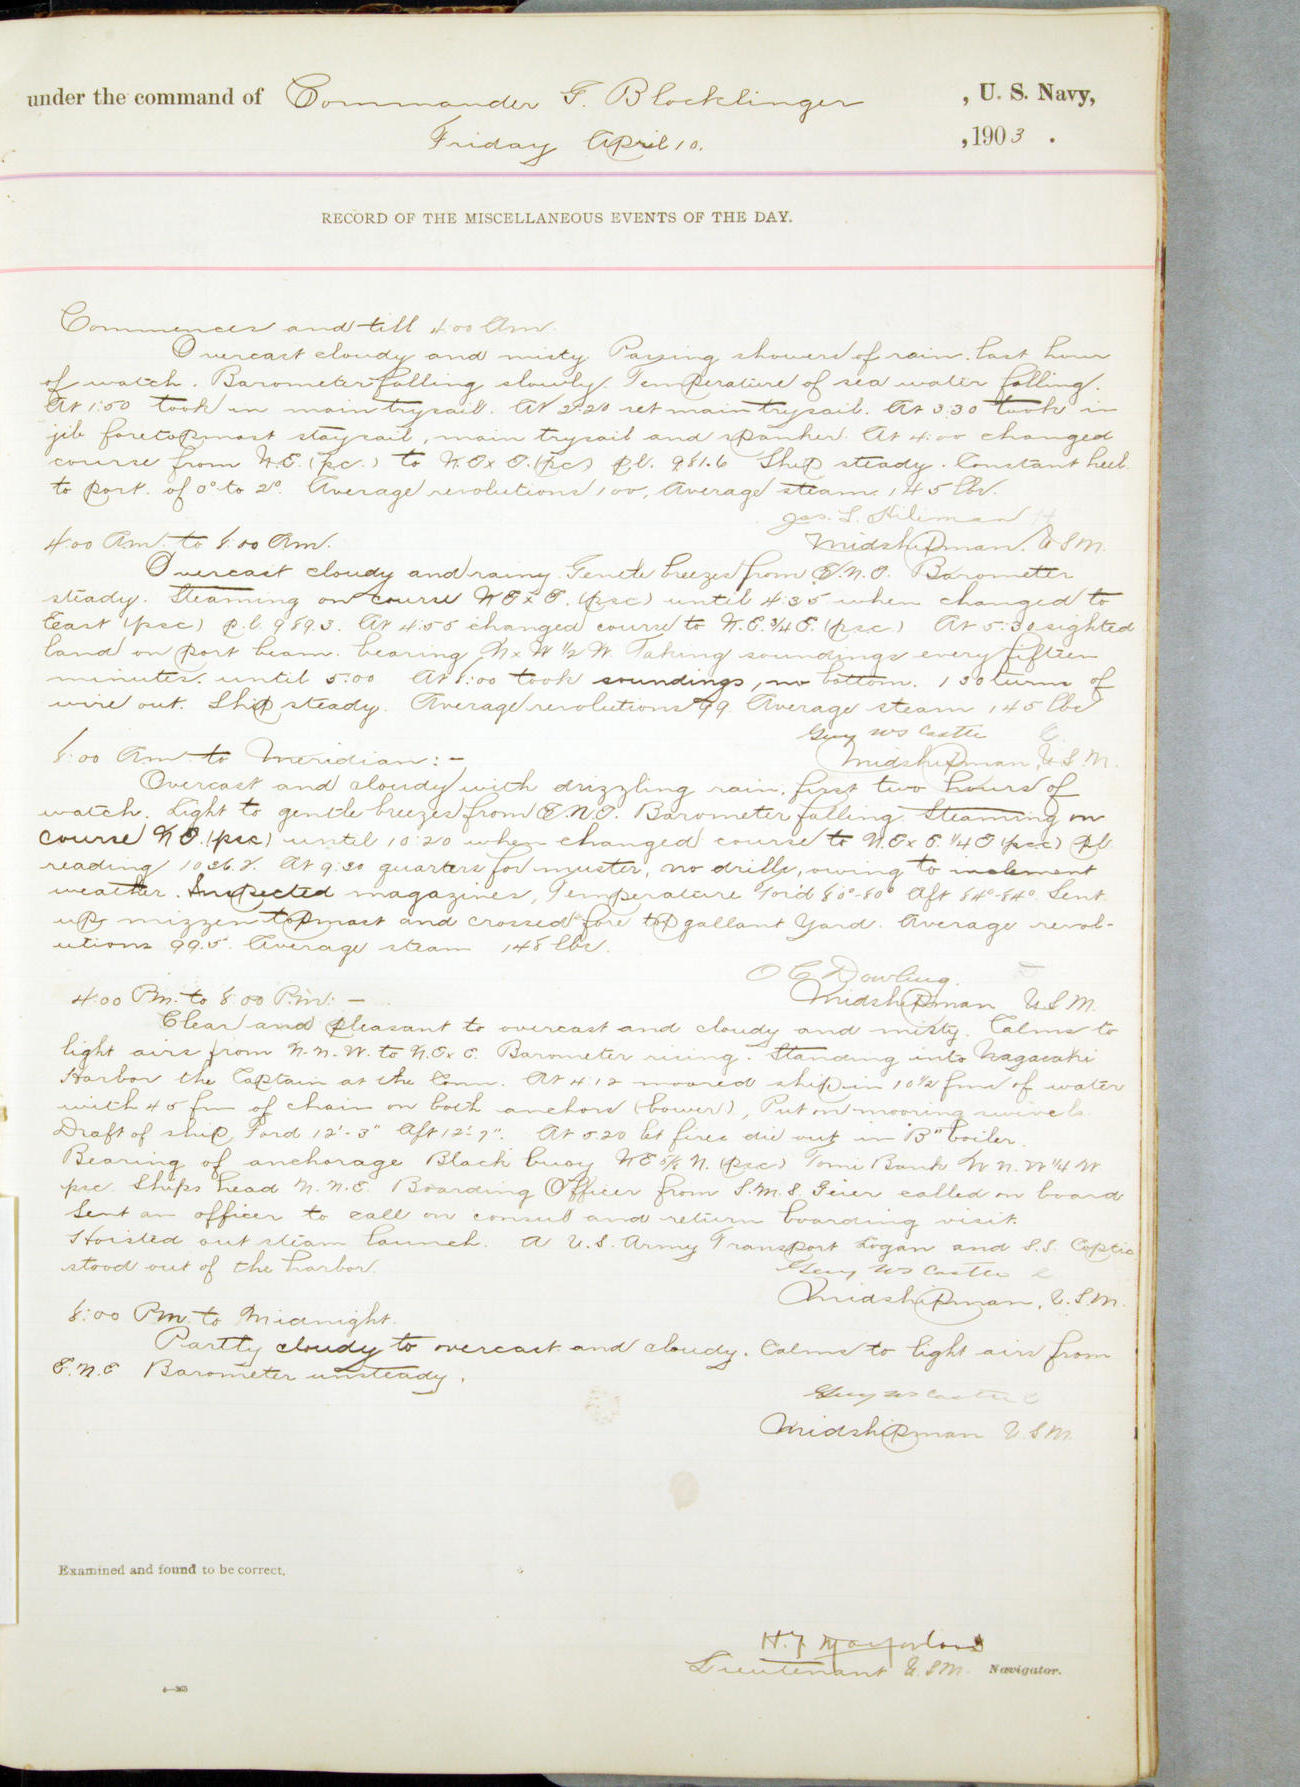 under the command of Commander G. Blocklinger , U. S. Navy,
Friday April 10. , 1903 .
RECORD OF THE MISCELLANEOUS EVENTS OF THE DAY.
Commences and till 4.00 Am.
Overcast cloudy and misty Passing showers of rain last hour
of watch. Barometer falling slowly. Temperature of sea water falling.
At 1:50 took in main trysail. At 2:20 set main trysail. At 3:30 took in
jib foretopmast staysail, main trysail and spanker. At 4:00 changed
course from N.E. (psc.) to N.E x E. (psc) p.l. 981.6 Ship steady. Constant heel
to port. of 0° to 2°. Average revolutions 100, Average steam 145 lbs.
Jas. L. Hileman
Midshipman. U.S.N.
4:00 Am. to 8:00 Am.
Overcast cloudy and rainy. Gentle breezes from E.N.E. Barometer
steady. Steaming on course N E x E. (psc) until 4:35 when changed to
East (psc) p.l. 989.3. At 4:55 changed course to N.E. 3/4 E. (psc.) At 5:30 sighted
land on port beam. bearing N x W 1/2 W. Taking soundings every fifteen
minutes. until 5:00 At 8:00 took soundings, no bottom. 130 turns of
wire out. Ship steady. Average revolutions 99. Average steam 145 lbs
Guy WS Castle
Midshipman, U.S.N.
8:00 Am to Meridian: -
Overcast and cloudy with drizzling rain. first two hours of
watch. Light to gentle breezes from E.N.E. Barometer falling. Steaming on
course N E. (psc) until 10:20 when changed course to N.E x E. 1/4 E (psc) p.l.
reading 1036.2. At 9:30 quarters for muster, no drills, owing to inclement
weather. Inspected magazines, Temperature For'd 80°-80° Aft 84°-84°. Sent
up mizzen topmast and crossed fore top gallant Yard. Average revol-
utions 99.5. Average steam 148 lbs.
O C Dowling.
Midshipman U.S.N.
4:00 Pm. to 8:00 P.m: -
Clear and pleasant to overcast and cloudy and misty. Calms to
light airs from N.N.W. to N.E x E. Barometer rising. Standing into Nagasaki
Harbor the Captain at the Conn. At 4:12 moored ship in 10 1/2 fms of water
with 45 fm of chain on both anchors (bower), Put on mooring swivels.
Draft of ship Ford 12'-3" Aft 12'-7". At 5.20 let fires die out in "B" boiler.
Bearing of anchorage Black buoy N E 5/8 N. (psc) Tomi Bank W N. W 1/4 W
psc. Ships head N.N.E. Boarding Officer from S.M.S. Geier called on board
Sent an officer to call on consul and return boarding visit.
Hoisted out steam launch. A U.S. Army Transport Logan and S.S. Coptic
stood out of the harbor.
Guy WS Castle
Midshipman, U.S.N.
8:00 Pm. to Midnight.
Partly cloudy to overcast and cloudy. Calms to light airs from
E.N.E Barometer unsteady.
Guy WS Castle
Midshipman U.S.N.
Examined and found to be correct.
H.F.
Lieutenant U.S.N. Navigator.